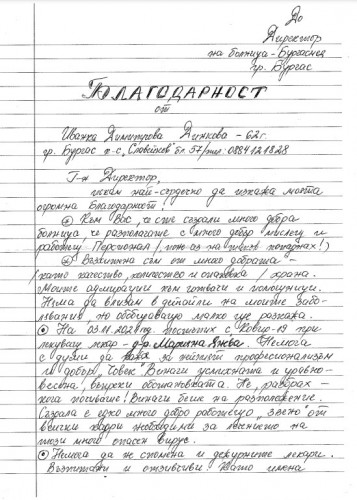 До
Директор
на болница - Бургасмед
гр. Бургас
БЛАГОДАРНОСТ
от
Иванка Димитрова Динкова - 62 г.
гр. Бургас ж-с „Славейков" бл. 57/тел: 0884121828
Г-н Директор,
искам най-сърдечно да изкажа моята
огромна благодарност!
Към Вас, че сте създали много добра
болница, че разполагате с много добър мислещ и
работещ Персонал /
Възхитена съм от много добрата -
/като качество, количество и опаковка / храна.
Моите адмирации към готвачи и помощници.
Няма да влизам в детайли на моите забо-
лявания, но обобщаващо малко ще разкажа.
На 03.11.2020 год. постъпих с Ковид-19 при
лекуващ лекар - д-р Марияна Янева. Немога
с думи да кажа за нейният професионализъм
и добър „Човек". Винаги усмихната и уравно-
весена, въпреки обстановката. Не разбрах -
кога почиваше! Винаги беше на разположение.
Създала е едно много добро работещо „звено" от
всички кадри необходими за лечението на
този много опасен вирус.
Немога да не спомена и дежурните лекари.
Възпитани и отзивчиви. Като имена